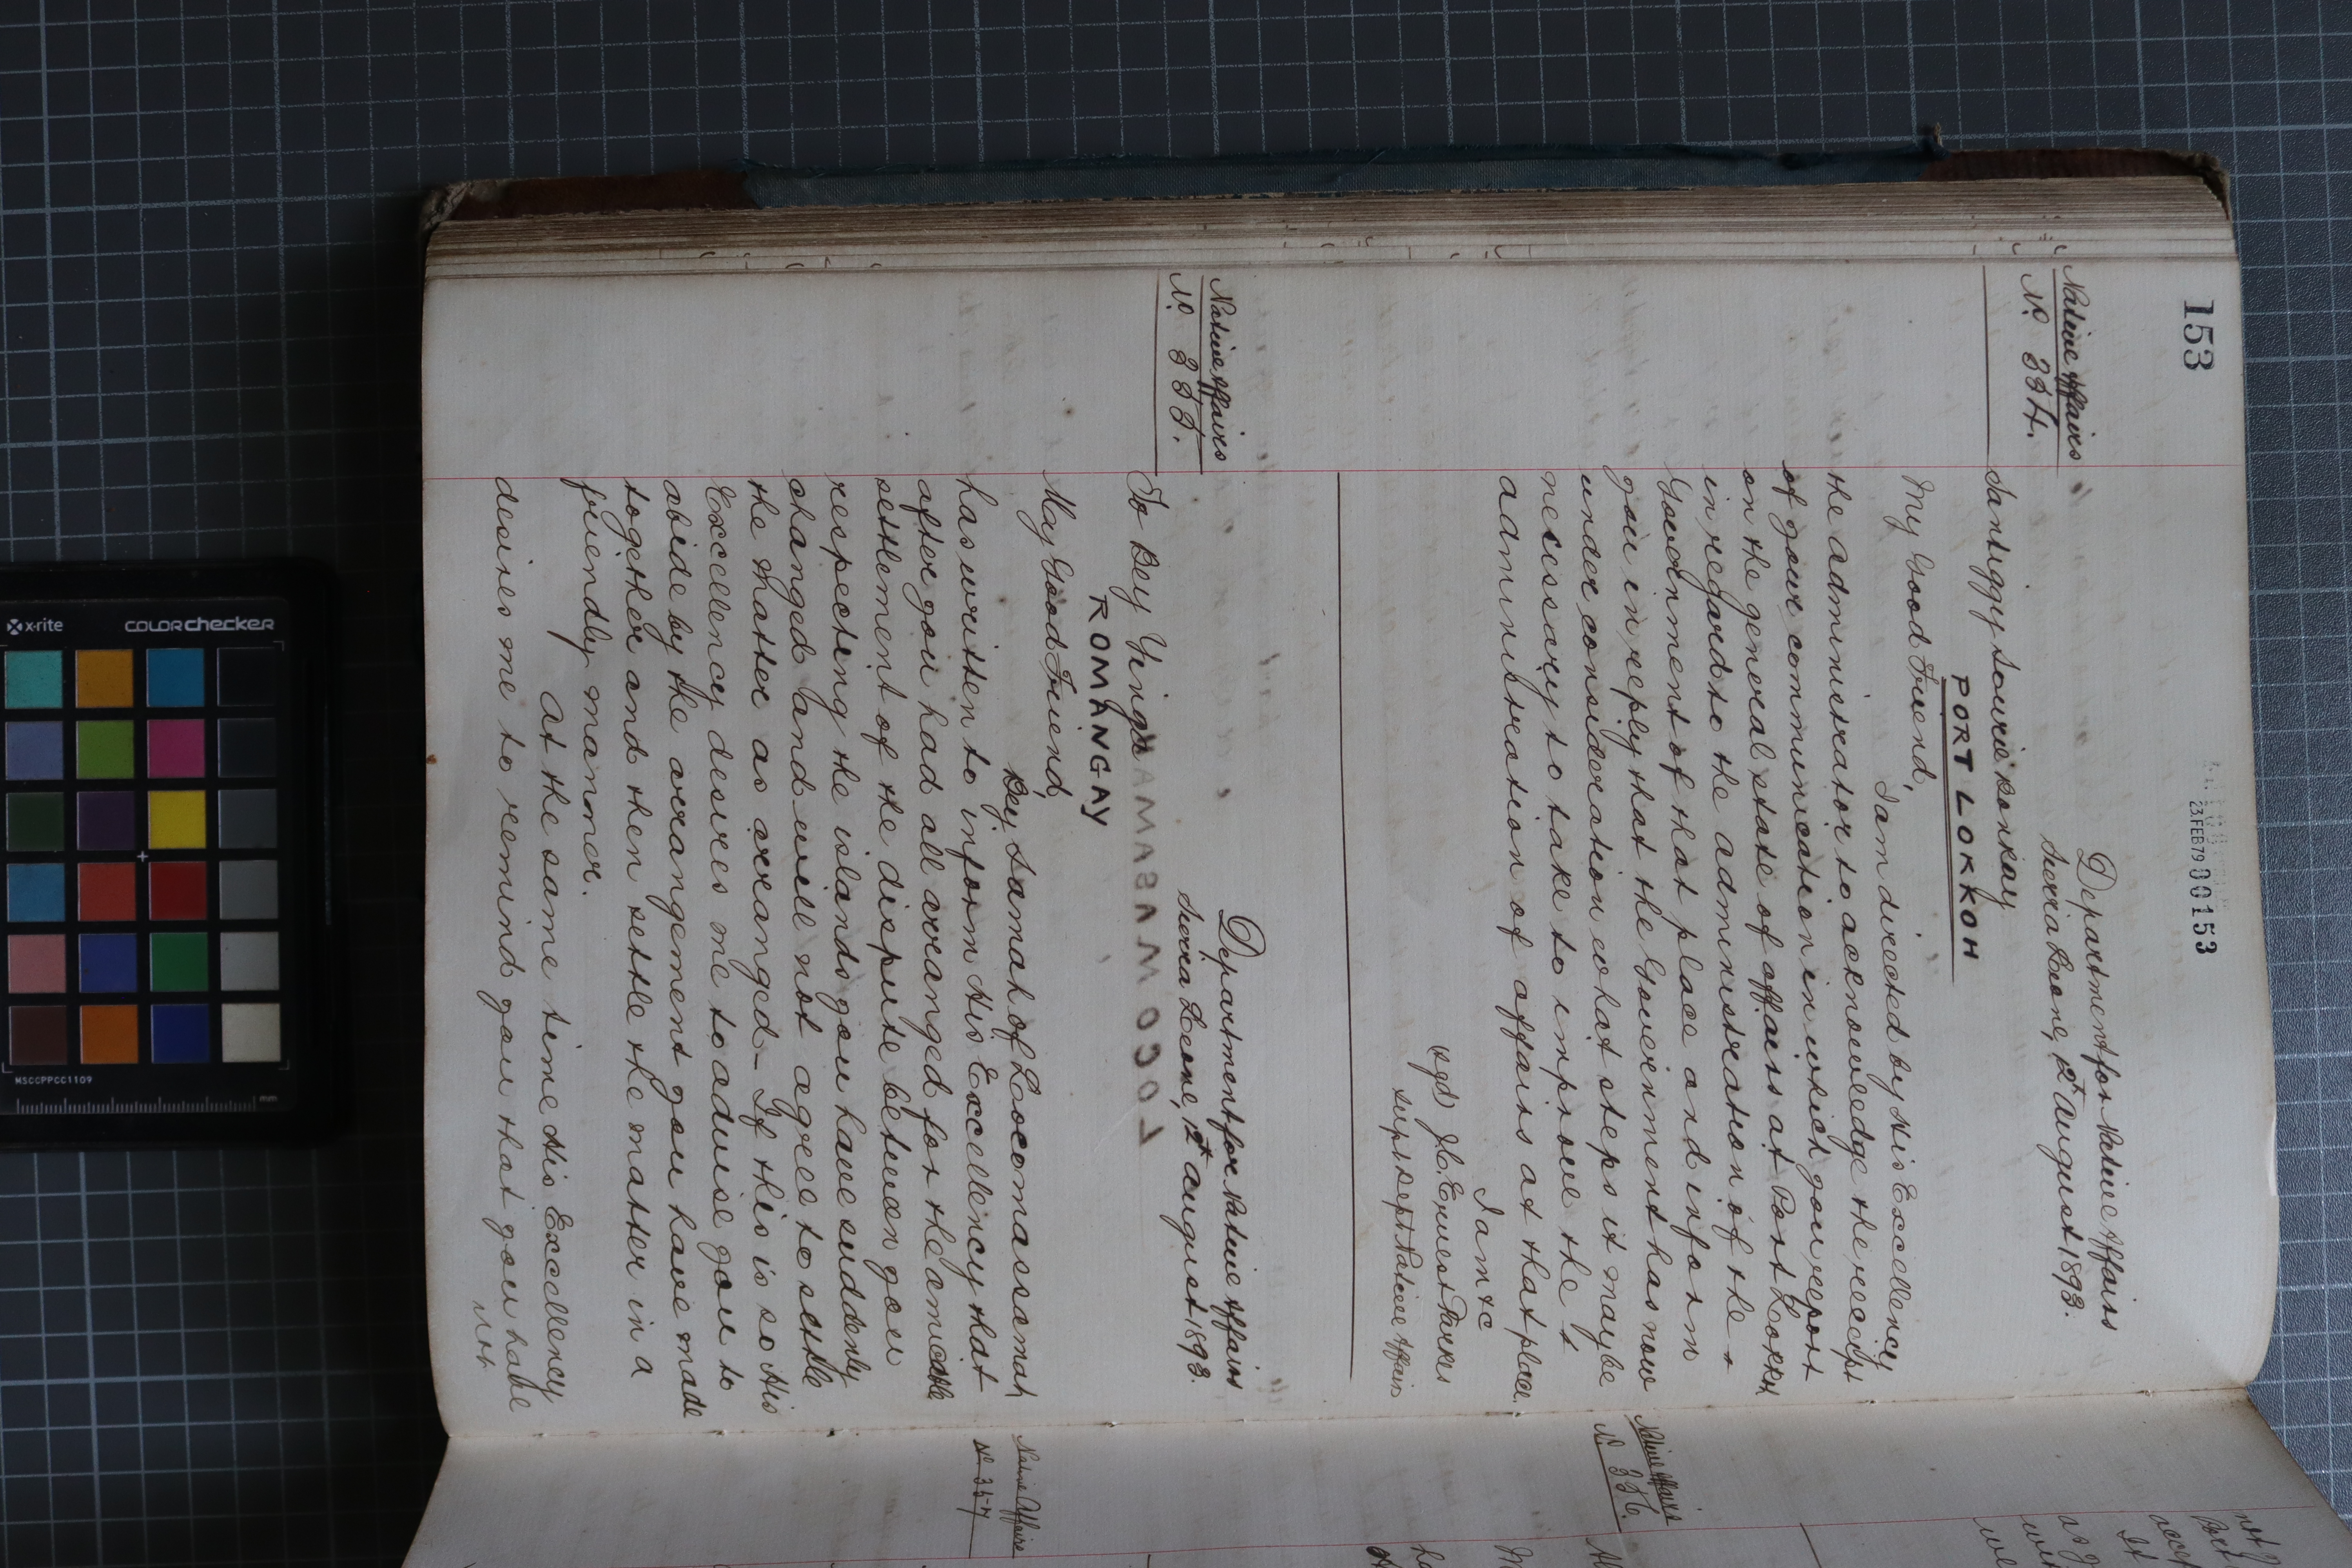 153
23.FEB79 000153
Department for Native Affairs
Sierra Leone, 12th August 1893.
Native Affairs
No. 354.
Santiggy Sourie Konkay
PORT LOKKOH
My Good Friend,
I am directed by His Excellency
the administrator to acknowledge the receipt
of your communication in which you report
on the general state of affairs at Port Lokkoh
in regard to the administration of the
Government of that place and inform
you in reply that the Government has now
under consideration what steps it may be
necessary to take to improve the
administration of affairs at that place.
I am &c
(Sgd) J. C. Ernest Parkes
Supt Dept Native Affairs
Department for Native Affairs
Sierra Leone, 12th August 1893.
Native Affairs
No. 355.
To Bey Yinga
ROMANGAY
My Good Friend,
Bey Samah of Locomassamah
has written to inform His Excellency that
after you had all arranged for the amicable
settlement of the dispute between you
respecting the islands you have suddenly
changed and will not agree to settle
the matter as arranged - If this is so His
Excellency desires me to advise you to
abide by the arrangement you have made
together and then settle the matter in a
friendly manner.
At the same time His Excellency
desires me to remind you that you have
not
Native Affairs
No. 356.
Native Affairs
No 357